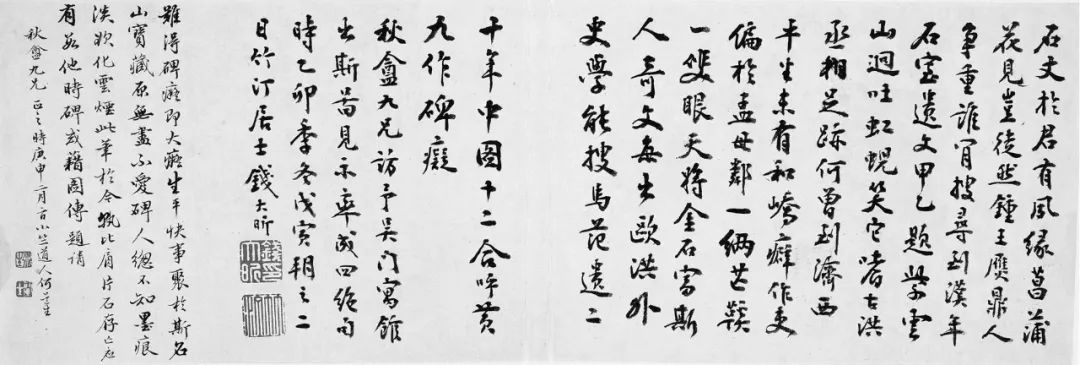 石丈於君有夙緣菖蒲
花見豈徒然鍾王贋鼎人
争重誰肯搜尋到漢年
石室遺文甲乙題紫雲
山迴吐虹蜺笑它嗜古洪
丞相足跡何曽到濟西
半生未有和嶠癖作吏
偏於孟母鄰一緉芒鞵
一雙眼天將金石富斯
人奇文每出歐洪外
史學能搜馬范遺二
十年中圖十二合呼黄
九作碑癡
秋盦九兄訪予吴門寓館
出斯圖見示率成四絶句
時乙卯季冬戊寅朔之二
日竹汀居士錢大昕
雖得碑癡即大癡生平快事聚於斯名
山寶藏原無盡不愛碑人總不知墨痕
淡欲化雲煙此筆於今孰比肩片石存亡應
有數他時碑或藉圖傳題請
秋盦九兄正之時庚申二月小竺道人何